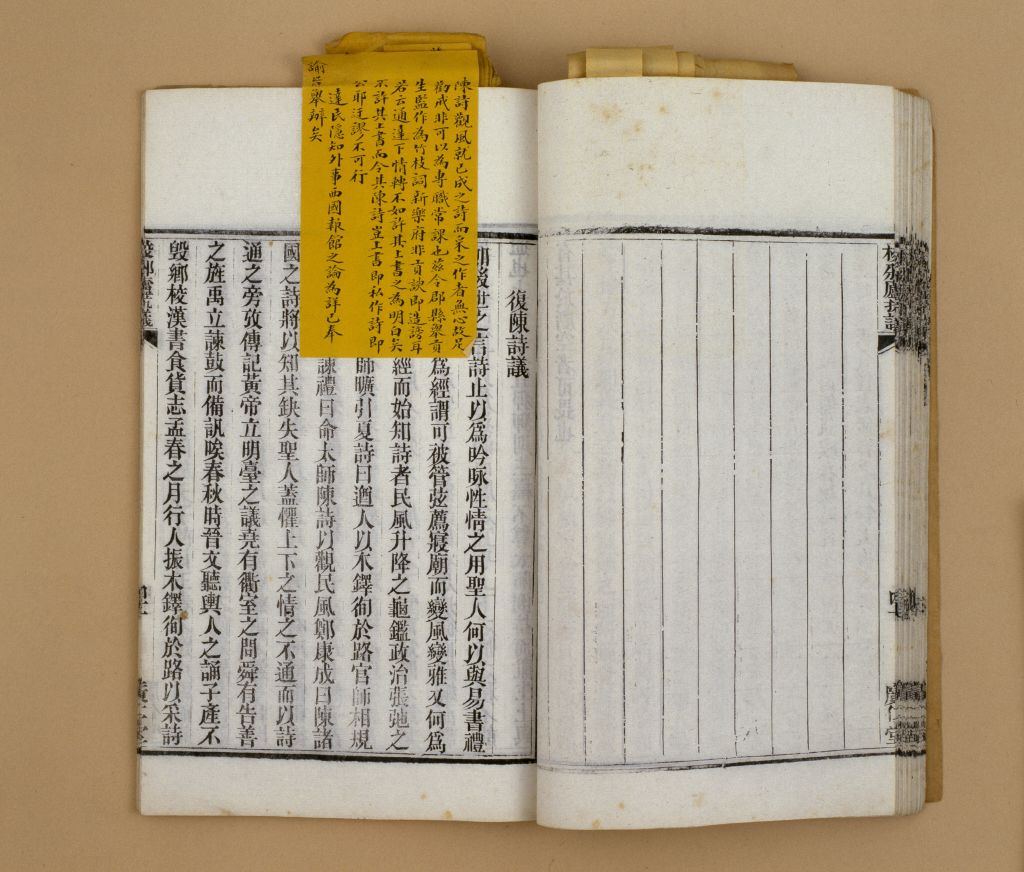 校邠廬抗議
廣仁堂
陳詩觀風就已成之詩而采之作者無心故足
勸戒非可以為專職常課也茲令郡縣舉貢
生監作為竹枝詞新樂府非貢諛即造謗耳
若云通達下情轉不如許其上書之為明白矣
不許其上書而令其陳詩豈上書即私作詩即
公耶迂謬不可行
達民隱知外事西國報館之論為詳已奉
諭旨舉辦矣
復陳詩議
如後世之言詩止以爲吟咏性情之用聖人何以與易書禮
爲經謂可被管弦薦寢廟而變風變雅又何爲
經而始知詩者民風升降之龜鑑政治張弛之
師曠引夏詩曰遒人以木鐸徇於路官師相規
諫禮曰命太師陳詩以觀民風鄭康成曰陳諸
國之詩將以知其缺失聖人蓋懼上下之情之不通而以詩
通之旁攷傳記黃帝立明臺之議堯有衢室之問舜有告善
之旌禹立諫鼓而備訊唉春秋時晉文聽輿人之誦子產不
毀鄉校漢書食貨志孟春之月行人振木鐸徇於路以采詩